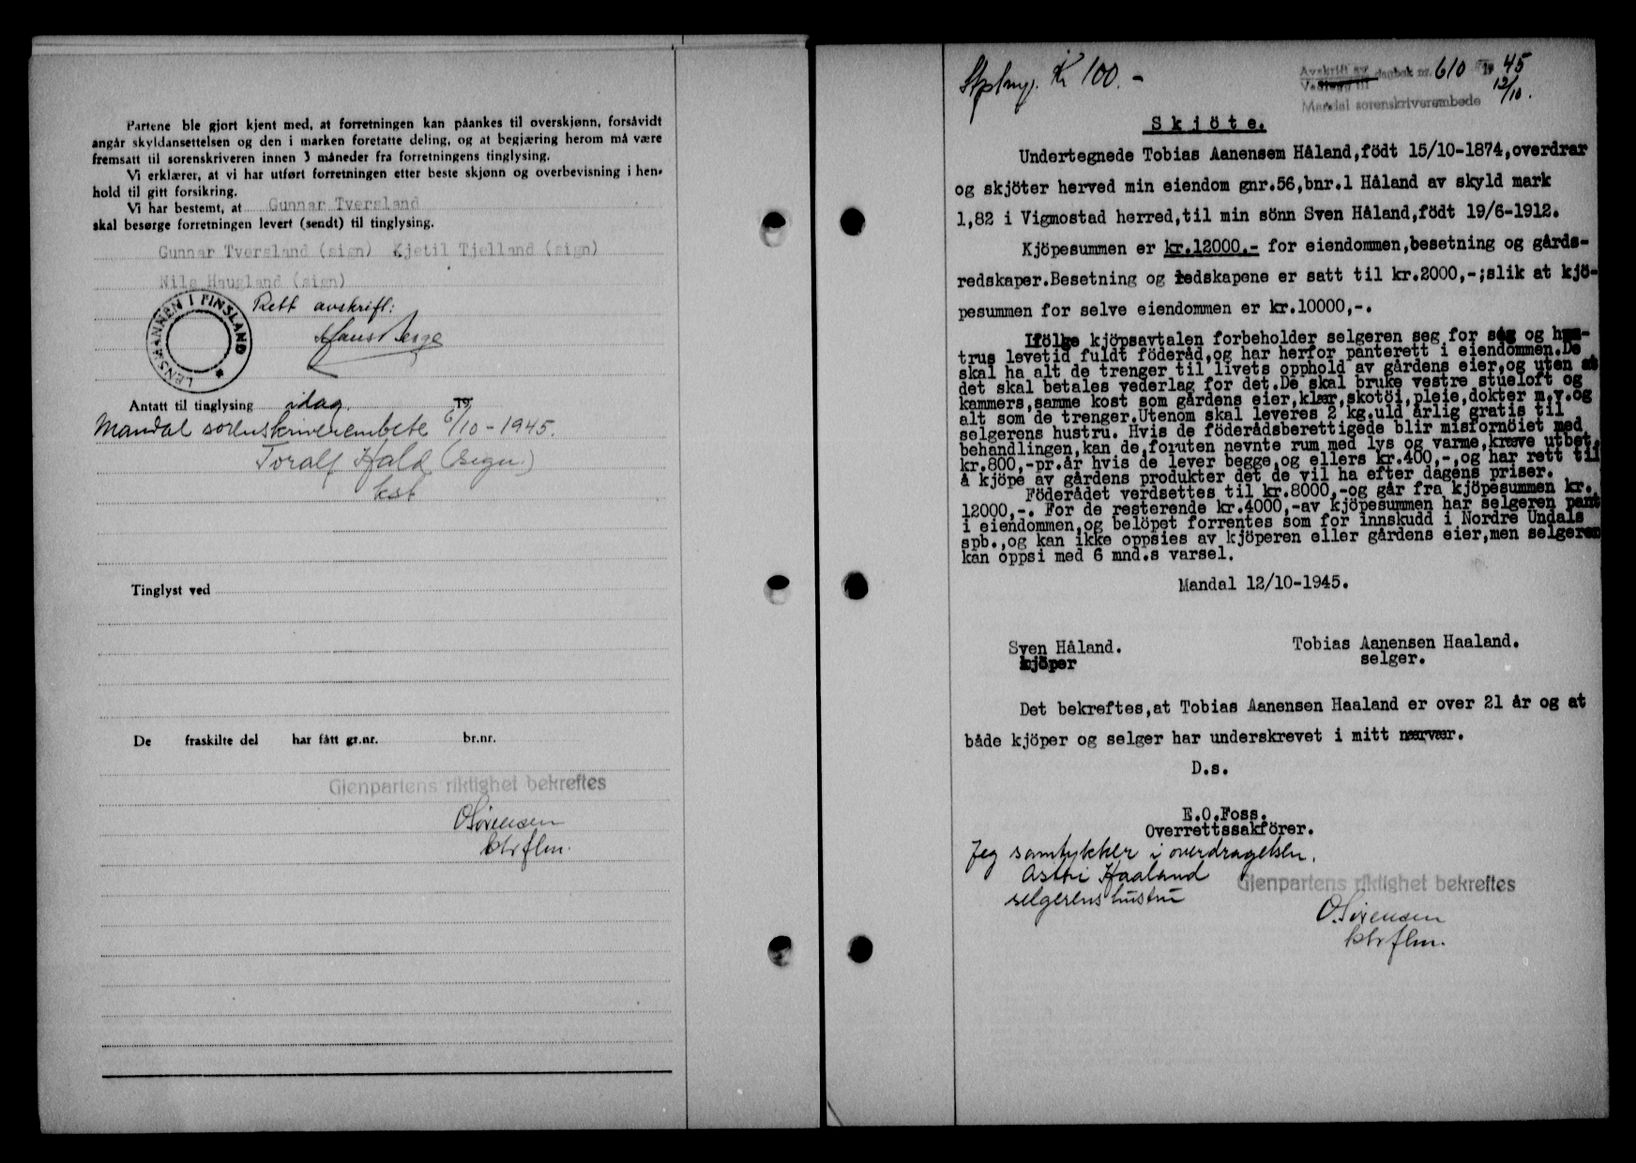 Partene ble gjort kjent med, at forretningen kan påankes til overskjønn, forsåvidt
angår skyldansettelsen og den i marken foretatte deling, og at begjæring herom må være
fremsatt til sorenskriveren innen 3 måneder fra forretningens tinglysing.
Vi erklærer, at vi har utført forretningen etter beste skjønn og overbevisning i hen-
hold til gitt forsikring.
Vi har bestemt, at Gunnar Tversland
skal besørge forretningen levert (sendt) til tinglysing.
Gunnar Tversland (sign) Kjetil Tjelland (sign)
Nils Haugland (sign)
LENSMANNEN I FINSLAND
Rett avskrift:
Antatt til tinglysing idag 19
Mandal sorenskriverembete 6/10-1945.
Toralf Hald (sign.)
kst
Tinglyst ved
De fraskilte del har fått gr.nr. br.nr.
Gjenpartens riktighet bekreftes
O. Sörensen
ktr flm.
Stpl.avg. Kr 100.-
Avskrift av dagbok nr. 610 19 45
Vedlegg til 12/10.
Mandal sorenskriverembede
Skjöte.
Undertegnede Tobias Aanensem Håland,födt 15/10-1874,overdrar
og skjöter herved min eiendom gnr.56,bnr.1 Håland av skyld mark
1,82 i Vigmostad herred,til min sönn Sven Håland,födt 19/6-1912.
Kjöpesummen er kr.12000.- for eiendommen,besetning og gårds-
redskaper.Besetning og redskapene er satt til kr.2000,-;slik at kjö-
pesummen for selve eiendommen er kr.10000,-.
Ifölge kjöpsavtalen forbeholder selgeren seg for seg og hus-
trus levetid fuldt föderåd,og har herfor panterett i eiendommen.De
skal ha alt de trenger til livets opphold av gårdens eier,og uten at
det skal betales vederlag for det.De skal bruke vestre stueloft og
kammers,samme kost som gårdens eier,klær,skotöi,pleie,dokter m.v.og
alt som de trenger.Utenom skal leveres 2 kg.uld årlig gratis til
selgerens hustru. Hvis de föderådsberettigede blir misfornöiet med
behandlingen,kan de,foruten nevnte rum med lys og varme,kræve utbet.
kr.800,-pr.år hvis de lever begge,og ellers kr.400,-,og har rett til
å kjöpe av gårdens produkter det de vil ha efter dagens priser.
Föderådet verdsettes til kr.8000,-og går fra kjöpesummen kr.
12000,-. For de resterende kr.4000,-av kjöpesummen har selgeren pant
i eiendommen,og belöpet forrentes som for innskudd i Nordre Undals
spb.,og kan ikke oppsies av kjöperen eller gårdens eier,men selgeren
kan oppsi med 6 mnd.s varsel.
Mandal 12/10-1945.
Sven Håland. Tobias Aanensen Haaland.
kjöper selger.
Det bekreftes,at Tobias Aanensen Haaland er over 21 år og at
både kjöper og selger har underskrevet i mitt nærvær.
D.s.
E.O.Foss.
Overrettssakförer.
Jeg samtykker i overdragelsen.
Astri Haaland
selgerens hustru
Gjenpartens riktighet bekreftes
O. Sörensen
ktr flm.